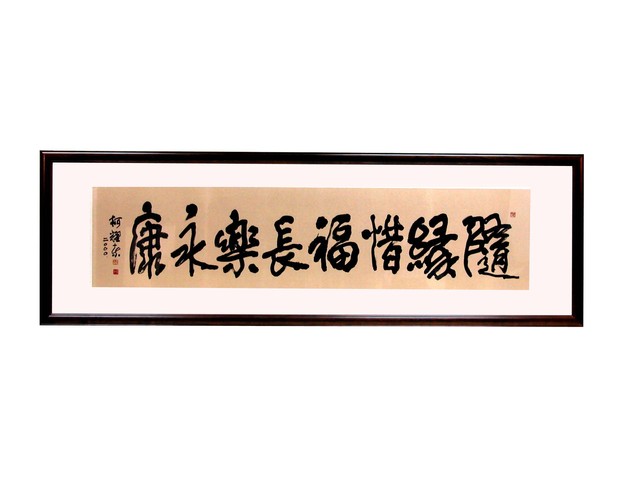 隨緣惜福長樂永康
二〇〇〇